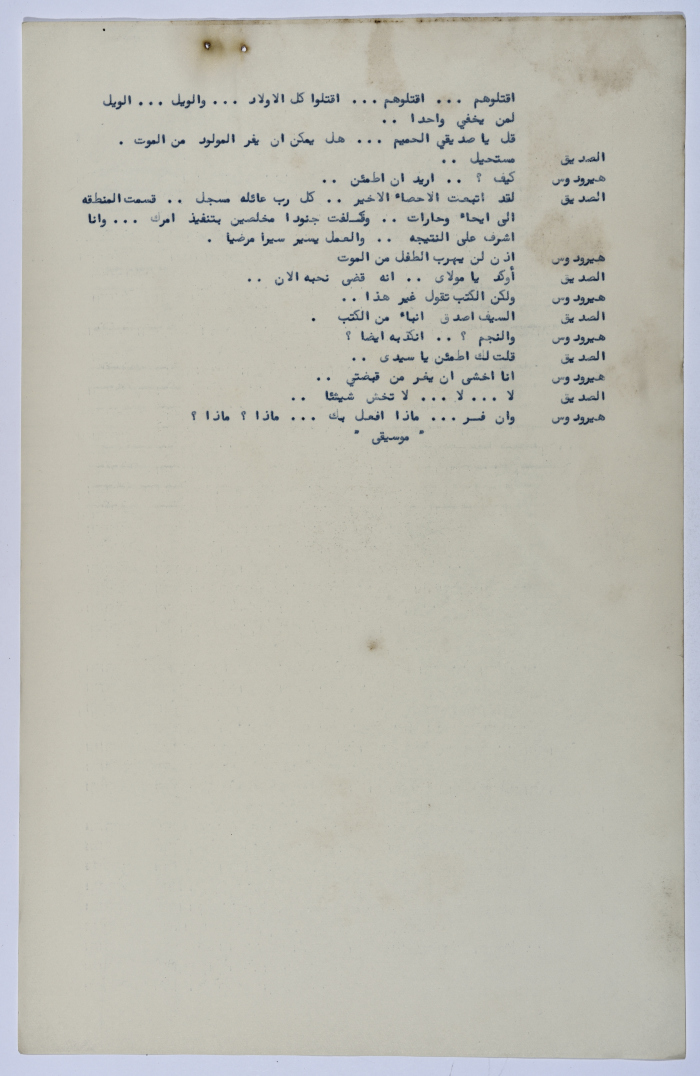 اقتلوهم ... اقتلوهم ... اقتلوا كل الاولاد ... والويل ... الويل
لمن يخفي واحدا ..
قل يا صديقي الحميم ... هل يمكن ان يفر المولود من الموت .
الصديق مستحيل ..
هيرودوس كيف ؟ .. اريد ان اطمئن ..
الصديق لقد اتبعت الاحصاء الاخير .. كل رب عائله مسجل .. قسمت المنطقه
الى ايحاء وحارات .. وكلفت جنودا مخلصين بتنفيذ امرك ... وانا
اشرف على النتيجه .. والعمل يسير سيرا مرضيا .
هيرودوس اذن لن يهرب الطفل من الموت
الصديق أوكد يا مولاى .. انه قضى نحبه الان ..
هيرودوس ولكن الكتب تقول غير هذا ..
الصديق السيف اصدق انباء من الكتب .
هيرودوس والنجم ؟ .. انكذبه ايضا ؟
الصديق قلت لك اطمئن يا سيدى ..
هيرودوس انا اخشى ان يفر من قبضتي ..
الصديق لا ... لا ... لا تخش شيئا ..
هيرودوس وان فسر ... ماذا افعل بك ... ماذا ؟ ماذا ؟
" موسيقى "